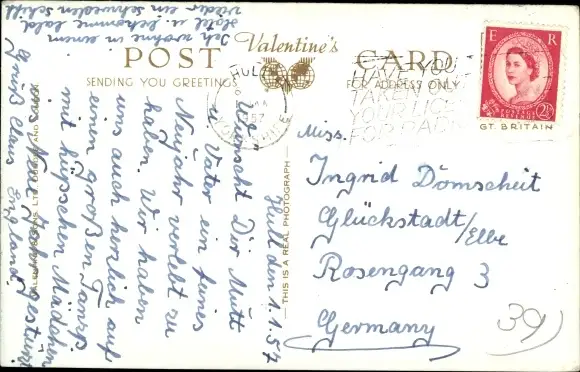 POST Valentine's CARD
SENDING YOU GREETINGS FOR ADDRESS ONLY
HULL
1957
YORKSHIRE
HAVE YOU
TAKEN OUT
YOUR LICENCE
FOR RADIO
E R
2½
POSTAGE
REVENUE
GT. BRITAIN
VALENTINE & SONS, LTD. DUNDEE AND LONDON
THIS IS A REAL PHOTOGRAPH
Hull den 1.1.57
wünscht Dir Mutt
u. Vater ein feines
Neujahr verlebt zu
haben. Wir haben
uns auch herzlich auf
einen großen Tanz
mit hübschen Mädchen
ins Neue Jahr gestürzt
Gruß Claus England.
Ich wohne in einem
Hotel u. bekomme bald
wieder ein schweden schiff
Miss.
Ingrid Dömscheit
Glückstadt/Elbe
Rosengang 3
Germany
39